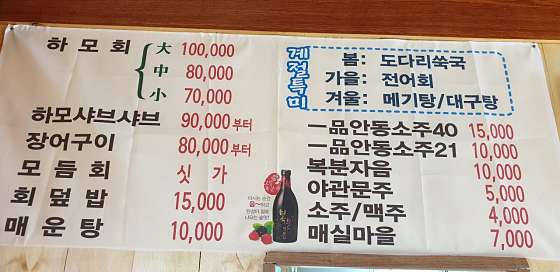 하모회 大 100,000
中 80,000
小 70,000
하모샤브샤브 90,000부터
장어구이 80,000부터
모듬회 싯가
회덮밥 15,000
매운탕 10,000
계절특미
봄: 도다리쑥국
가을: 전어회
겨울: 메기탕/대구탕
一品안동소주40 15,000
一品안동소주21 10,000
복분자음 10,000
야관문주 5,000
소주/맥주 4,000
매실마을 7,000